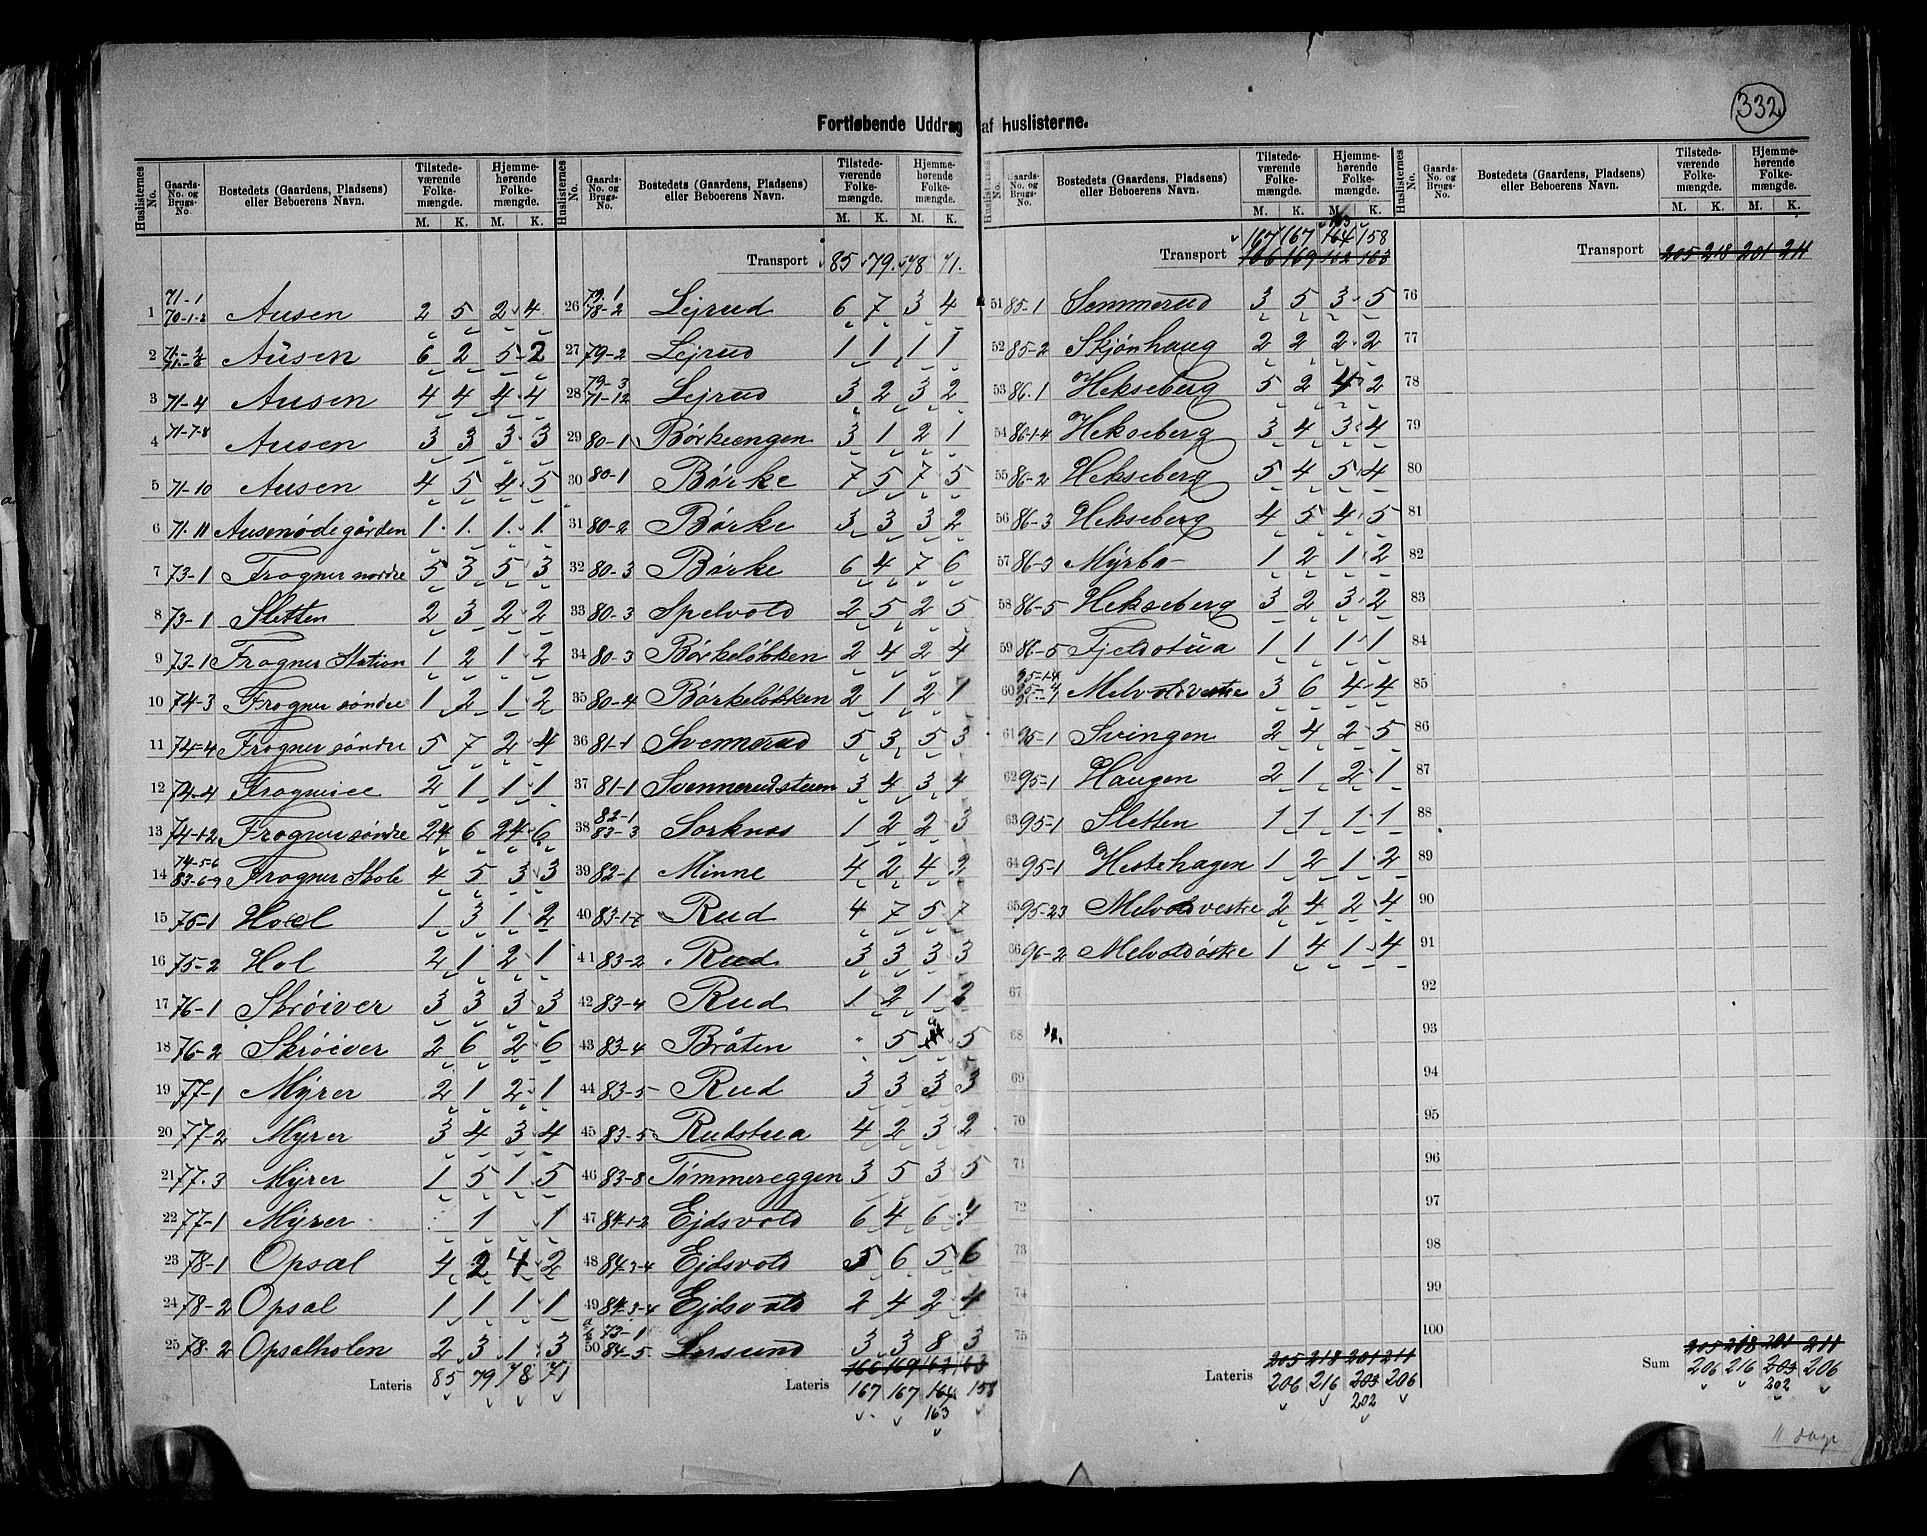 332
Fortløbende Uddrag af huslisterne.
Huslisternes No. | Gaards-No. og Brugs-No. | Bostedets (Gaardens, Pladsens) eller Beboerens Navn. | Tilstedeværende Folkemængde. M. K. | Hjemmehørende Folkemængde. M. K.
1 71-1 70-1-2 Ausen 2 5 2 4
2 Ausen 6 2 5 2
3 71-4 Ausen 4 4 4 4
4 71-7-8 Ausen 3 3 3 3
5 71-10 Ausen 4 5 4 5
6 71.11 Ausenødegården 1 1 1 1
7 73-1 Frogner nordre 5 3 5 3
8 73-1 Sletten 2 3 2 2
9 73-1 Frogner Station 1 2 1 2
10 74-3 Frogner søndre 1 2 1 2
11 74-4 Frogner søndre 5 7 2 4
12 74-4 2 1 1 1
13 74-1-2 Frogner søndre 24 6 24 6
14 74-5-6 83-6-9 Frogner Skole 4 5 3 3
15 75-1 Hoel 1 3 1 2
16 75-2 Hol 2 1 2 1
17 76-1 Skrøiver 3 3 3 3
18 76-2 Skrøiver 2 6 2 6
19 77-1 Myrer 2 1 2 1
20 77-2 Myrer 3 4 3 4
21 77.3 Myrer 1 5 1 5
22 77-1 Myrer 1 1
23 78-1 Opsal 4 2 4 2
24 78-2 Opsal 1 1 1 1
25 78.2 Opsalholen 2 3 1 3
Lateris 85 79 78 71
Huslisternes No. | Gaards-No. og Brugs-No. | Bostedets (Gaardens, Pladsens) eller Beboerens Navn. | Tilstedeværende Folkemængde. M. K. | Hjemmehørende Folkemængde. M. K.
Transport 85 79 78 71.
26 79.1 78-2 Lejrud 6 7 3 4
27 79-2 Lejrud 1 1 1 1
28 79-3 71-12 Lejrud 3 2 3 2
29 80-1 Børkeengen 3 1 2 1
30 80-1 Børke 7 5 7 5
31 80-2 Børke 3 3 3 2
32 80-3 Børke 6 4 7 6
33 80-3 Spelvold 2 5 2 5
34 80-3 Børkeløkken 2 4 2 4
35 80-4 Børkeløkken 2 1 2 1
36 81-1 Svennerud 5 3 5 3
37 81-1 Svennerudstuen 3 4 3 4
38 82-1 83-3 Sorknæs 1 2 2 3
39 82-1 Minne 4 2 4 2
40 83-1-7 Rud 4 7 5 7
41 83-2 Rud 3 3 3 3
42 83-4 Rud 1 2 1 2
43 83-4 Bråten 5 5
44 83-5 Rud 3 3 3 3
45 83-5 Rudstua 4 2 3 2
46 83-8 Tømmereggen 3 5 3 5
47 84-1-2 Ejdsvold 6 4 6 4
48 84-3-4 Ejdsvold 5 6 5 6
49 84-3-4 Ejdsvold 2 4 2 4
50 73-1 84-5 Lersund 3 3 8 3
166 169 162 163
Lateris 167 167 164 158
163
Huslisternes No. | Gaards-No. og Brugs-No. | Bostedets (Gaardens, Pladsens) eller Beboerens Navn. | Tilstedeværende Folkemængde. M. K. | Hjemmehørende Folkemængde. M. K.
163
167 167 164 158
Transport 166 169 162 163
51 85-1 Sommerud 3 5 3 5
52 85-2 Skjønhaug 2 2 2 2
53 86.1 Hekseberg 5 2 4 2
54 86-1-4 Hekseberg 3 4 3 4
55 86-2 Hekseberg 5 4 5 4
56 86-3 Hekseberg 4 5 4 5
57 86-3 Myrbo 1 2 1 2
58 86-5 Hekseberg 3 2 3 2
59 86-5 Fjeldstua 1 1 1 1
60 Melvold vestre 3 6 4 4
61 95-1 Svingen 2 4 2 5
62 95-1 Haugen 2 1 2 1
63 95-1 Sletten 1 1 1 1
64 95-1 Hestehagen 1 2 1 2
65 95-23 Melvold vestre 2 4 2 4
66 96-2 Melvold østre 1 4 1 4
67
68
69
70
71
72
73
74
75
205 218 201 211
Lateris 206 216 203 206
202
Huslisternes No. | Gaards-No. og Brugs-No. | Bostedets (Gaardens, Pladsens) eller Beboerens Navn. | Tilstedeværende Folkemængde. M. K. | Hjemmehørende Folkemængde. M. K.
Transport 205 218 201 211
76
77
78
79
80
81
82
83
84
85
86
87
88
89
90
91
92
93
94
95
96
97
98
99
100
205 218 201 211
Sum 206 216 203 206
202